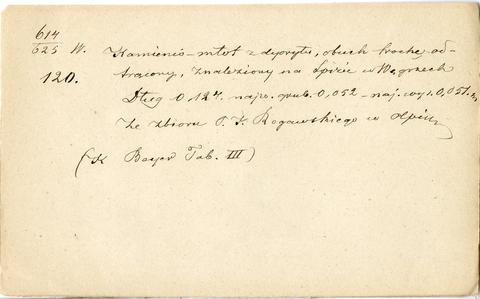 614
625 W. Kamienie – młot z dyorytu, obuch trochę od-
120. trącony, znaleziony na Spiżu w Węgrzech
Dług 0,124. najw. grub. 0,052 – naj. wys. 0,051. m
Ze zbioru T. K. Rogawskiego w Ołpin
(K Beyer Tab. III)